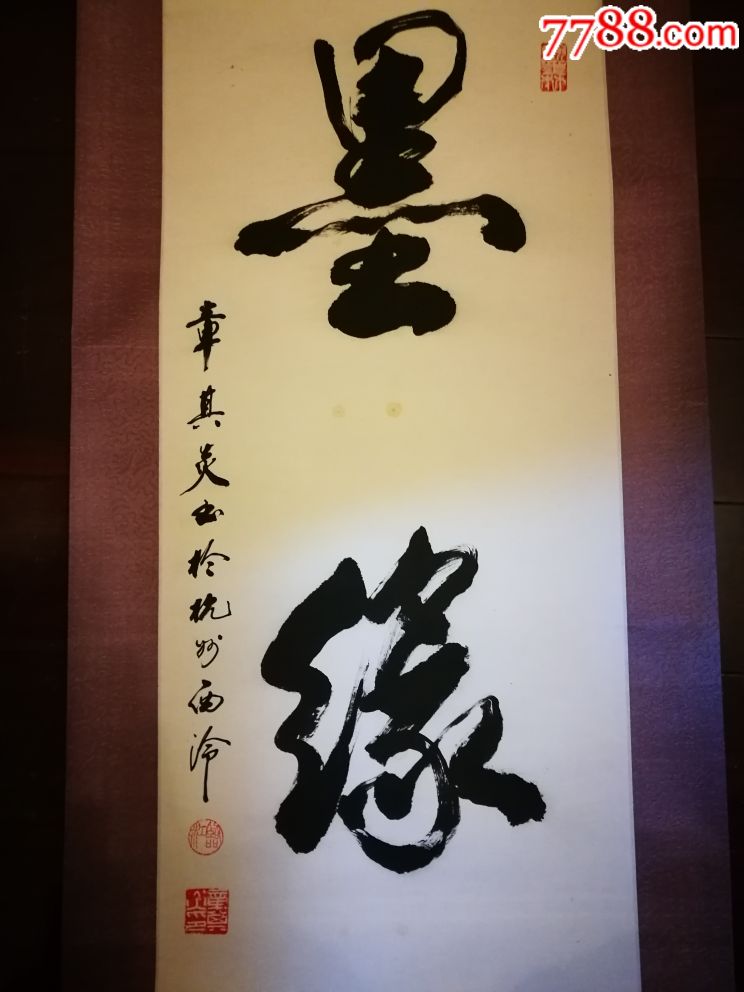 7788.com
墨缘
章其炎书於杭州西泠